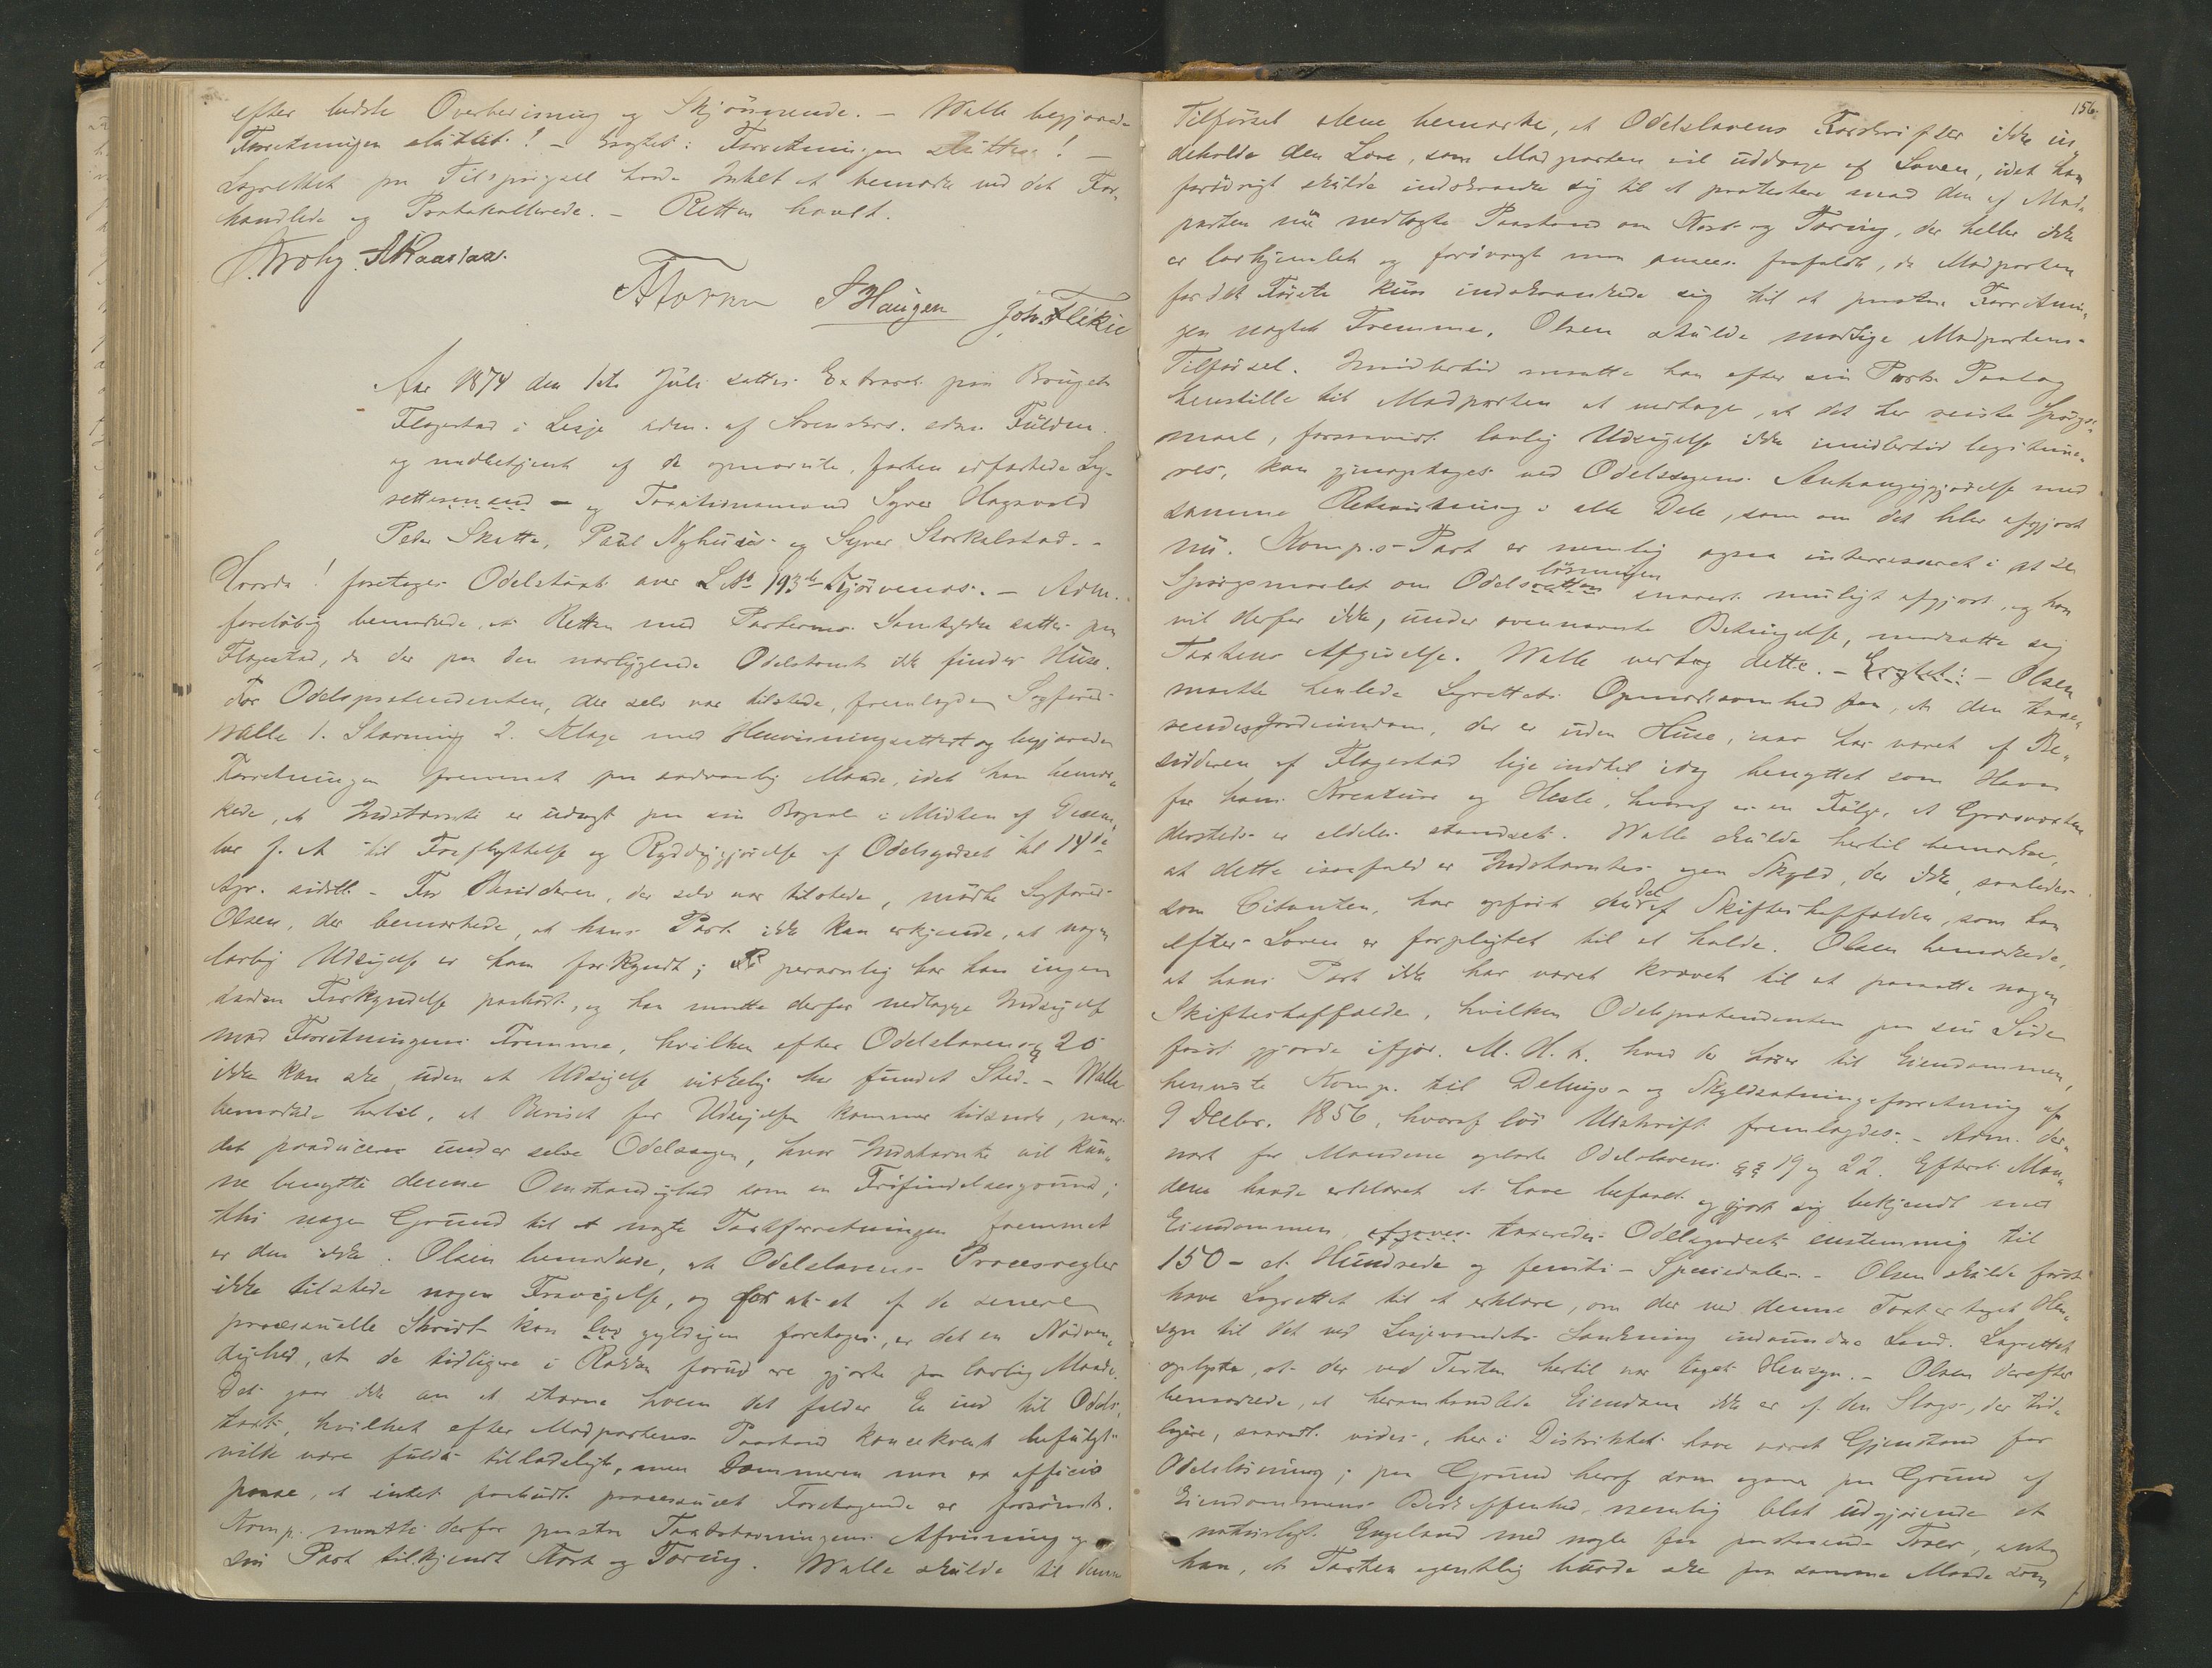 efter bedste Overbevisning og Skjønnende. – Walle begjærede
Forretningen sluttet! – Eragtet: Forretningen sluttes! –
Lagrettet paa Tilspørgsel havde Intet at bemærke ved det For-
handlede og Protokollerede. – Retten hævet.
Aar 1874 den 1ste Juli sattes Extraret paa Bruget
Flagestad i Lesje adm. af Sorenskr.
og medbetjent af de opnævnte, forhen edfæstede Lag-
rettesmænd – og Taxationsmænd Syver Hagevold
Peder Skotte, Paul Nyhuus og Syver Storkalstad. –
Hvorda! foretoges Odelstaxt over L.No 193 – Adm.
foreløbig bemærkede, at Retten med Parternes Samtykke sattes paa
Flagestad, da der paa den nærliggende Odelstomt ikke findes Huse.
For Odelsprætendenten, der selv var tilstede, fremlagde Sagfører
Walle 1. Stævning 2. Klage med Henvisningsattest og begjærede
Forretningen fremmet paa sædvanlig Maade, idet han bemær-
kede, at Indstævnte er udsagt paa sin Bopæl i Midten af Decem-
ber f. A til Fraflyttelse og Ryddiggjørelse af Odelsgodset til 14de
Apr. sidstl. – For Besidderen, der selv var tilstede, mødte Sagfører
Olsen, der bemærkede, at hans Part ikke kan erkjende, at nogen
lovlig Udsigelse er ham forkyndt; personlig har han ingen
saadan Forkyndelse paahørt, og han maatte derfor nedlægge Indsigelse
mod Forretningens Fremme, hvilken efter Odelslovens § 20
ikke kan ske, uden at Udsigelse virkelig har fundet Sted. – Walle
bemærkede hertil, at Beviset for Udsigelsen kommer tidsnok, naar
det produceres under selve Odelssagen, hvor Indstævnte vil kun-
ne benytte denne Omstændighed som en Frifindelsesgrund;
thi nogen Grund til at nægte Taxtforretningen fremmet
er den ikke. Olsen bemærkede, at Odelslovens Procesregler
ikke tilstede nogen Fravigelse, og for at et af de senere
processuelle Skridt kan lov gyldigen foretages, er det en Nødven-
dighed, at de tidligere i Rækken forud ere gjorte paa lovlig Maade.
Det gaar ikke an at stævne hvem det falder En ind til Odels-
taxt, hvilket efter Modpartens Paastand konsekvent befulgt
vilde være fuldt tilladeligt, men Dommeren maa ex officio
paase, at intet paabudt processuelt Foretagende er forsømt.
Komp. maatte derfor paastaa Taxtstævningens Afvisning og
sin Part tilkjendt Kost og Tæring. Walle skulde til denne
156.
Tilførsel alene bemærke, at Odelslovens Forskrifter ikke in-
deholde den Lære, som Modparten vil uddrage af Loven, idet han
forøvrigt skulde indskrænke sig til at protestere mod den af Mod-
parten nu nedlagte Paastand om Kost og Tæring, der heller ikke
er lovhjemlet og forøvrigt maa ansees frafaldt, da Modparten
for det Første kun indskrænkede sig til at paastaa Forretnin-
gen nægtet Fremme. Olsen skulde modsige Modpartens
Tilførsel. Imidlertid maatte han efter sin Parts Paalæg
henstille til Modparten at vedtage, at det her reiste Spørgs-
maal, forsaavidt lovlig Udsigelse ikke imidlertid legitime-
res, kan gjenoptages ved Odelssagens Anhængiggjørelse med
samme Retsvirkning i alle Dele, som om det blev afgjort
nu. Komp.s Part er nemlig ogsaa interesseret i at se
løsningen
Spørgsmaalet om Odelsretten snarest muligt afgjort, og han
vil derfor ikke, under ovennævnte Betingelse, modsætte sig
Taxtens Afgivelse. Walle vedtog dette. – Eragtet: – Olsen
maatte henlede Lagrettets Opmærksomhed paa, at den
Jordeiendom, der er uden Huse, iaar har været af Be-
sidderen af Flagestad lige indtil idag benyttet som Havn
for hans Kreature og Heste, hvoraf er en Følge, at Græsvæxten
dersteds er aldeles standset. Walle skulde hertil bemærke,
at dette isaafald er Indstævntes egen Skyld, der ikke, saaledes
som Citanten, har opført Del af Skifteshaffolden, som han
efter Loven er forpligtet til at holde. Olsen bemærkede,
at hans Part ikke har været krævet til at paasætte nogen
Skifteshaffolde, hvilken Odelsprætendenten paa sin Side
først gjorde ifjor. M. H. t. hvad der hører til Eiendommen,
henviste Komp. til Delings- og Skyldsætningsforretning af
9 Decbr. 1856, hvoraf løs Udskrift fremlagdes. – Adm. der-
næst for Mændene oplæste Odelslovens §§ 19 og 22. Efterat Mæn-
dene havde erklæret at have befaret og gjort sig bekjendt med
Eiendommen, afgaves taxeredes Odelsgodset enstemmig til
150 – et Hundrede og femti – Speciedaler. – Olsen skulde først
have Lagrettet til at erklære, om der ved denne Taxt er taget Hen-
syn til det ved Lesjevandets Sænkning indvundne Land. Lagrettet
oplyste, at der ved Taxten hertil var taget Hensyn. – Olsen derefter
bemærkede, at heromhandlede Eiendom ikke er af den Slags, der tid-
ligere, saavidt vides, her i Distriktet have været Gjenstand for
Odelsløsning; paa Grund heraf som ogsaa paa Grund af
Eiendommens Beskaffenhed, nemlig blot udgjørende et
naturligt Engeland med nogle faa paastaaende Træer, antog
han, at Taxten egentlig burde ske paa samme Maade som